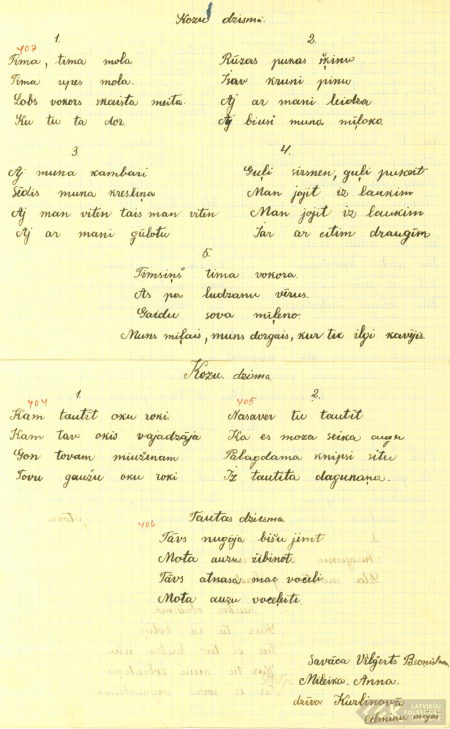 Kozu dzismå.
403
1.
Tima, tima mola
Tima upes mola.
Lobs vokors skaista meita.
Ku tu ta dor.
2.
Rūzas pukas šķinu
Isav kruni pinu
Aj ar mani leidza
Aj biusi muna miļoko.
3.
Aj muna kambari
Sēdis muna kresliņa
Aj man viten tais man viten
Aj ar mani gūlotu
4.
Guļi sirmen, guļi puskait
Man jojit iz laukim
Man jojit iz laukim
Iar ar citim draugim
5.
Timsiņš tima vokora.
As pa ludzanu vērus.
Gaidu sova miļeno.
Muns miļais, muns dorgais, kur tik ilgi kavējis.
Kozu dzisma
404
1.
Kam tautit oku roki
Kam tav okis vajadzāja
Gon tovam miužeņam
Tovu gaužu oku roki
405
2.
Nasaver tu tautit
Ka es moza seika augu
Palagdama knipsi situ
Iz tautita dagunaņa.
Tautas dziesma
406
Tāvs nugōja bišu jimt
Mota auzu žibinot.
Tāvs atnasa mac voceli
Mota auzu voceļuti.
Savāca Vilģerts Bronislavs
Mileika Anna.
dzīvo Kurlinovā
Celmiņu mājās
LATVIEŠU FOLKLORAS